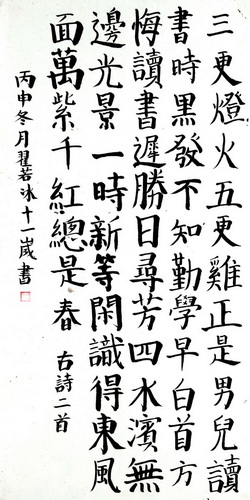 三更燈火五更雞正是男兒讀
書時黑發不知勤學早白首方
悔讀書遲勝日尋芳四水濱無
邊光景一時新等閑識得東風
面萬紫千紅總是春 古詩二首
丙申冬月翟若冰十一歲書